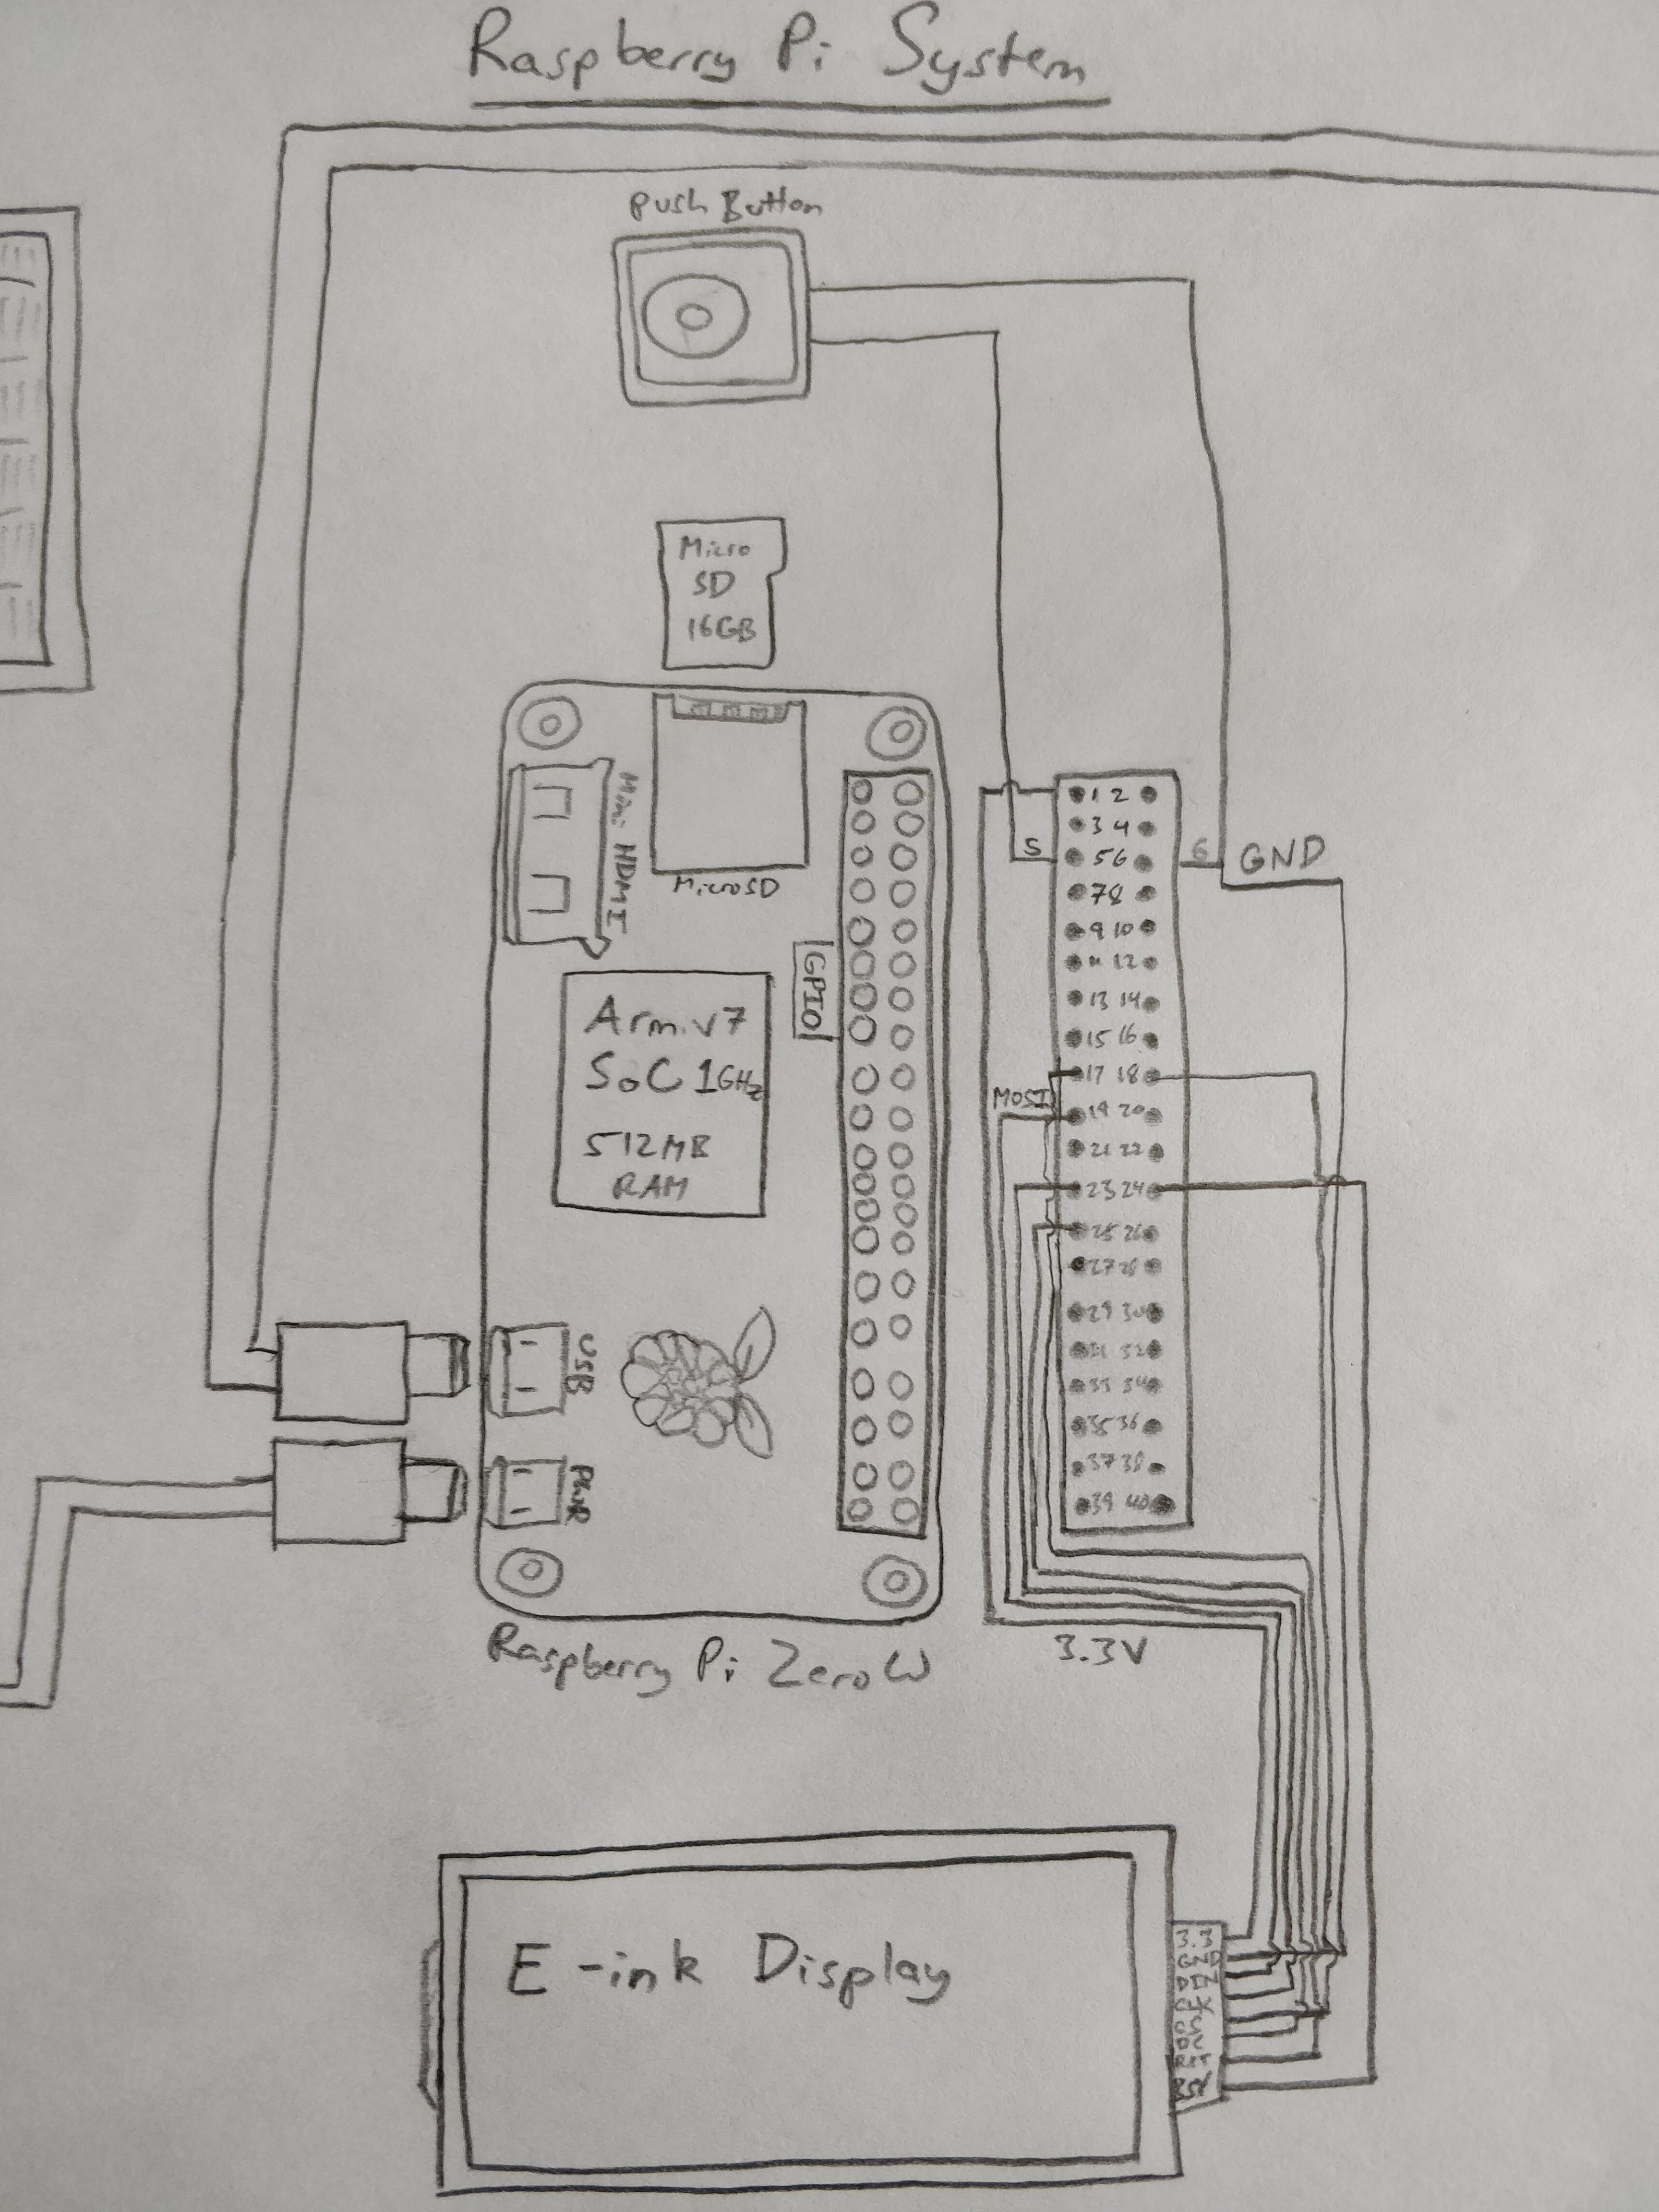 Raspberry Pi System
Push Button
Micro
SD
16GB
Mini HDMI
MicroSD
GPIO
Arm.v7
SoC 1GHz
512MB
RAM
USB
PWR
Raspberry Pi Zero W
5
6
GND
MOSI
1 2
3 4
5 6
7 8
9 10
11 12
13 14
15 16
17 18
19 20
21 22
23 24
25 26
27 28
29 30
31 32
33 34
35 36
37 38
39 40
3.3V
E-ink Display
3.3
GND
CS
DC
RST
BSY